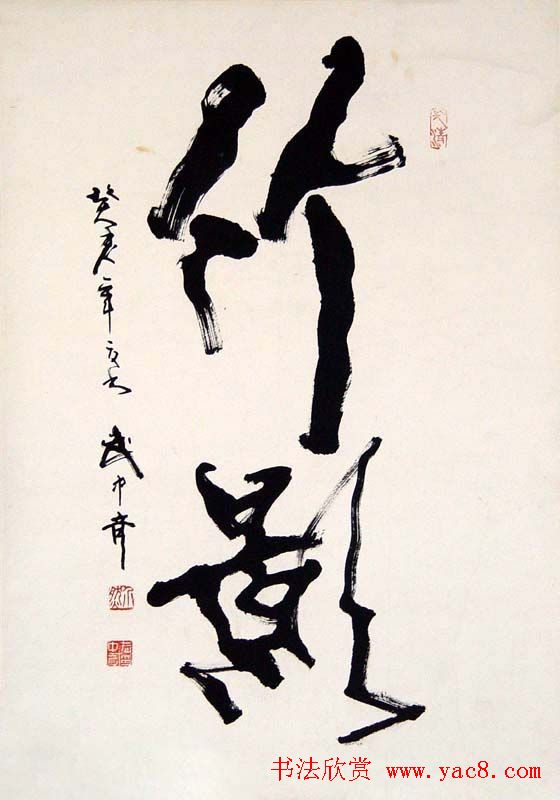 竹影
癸亥年夏书 武中奇
书法欣赏 www.yac8.com